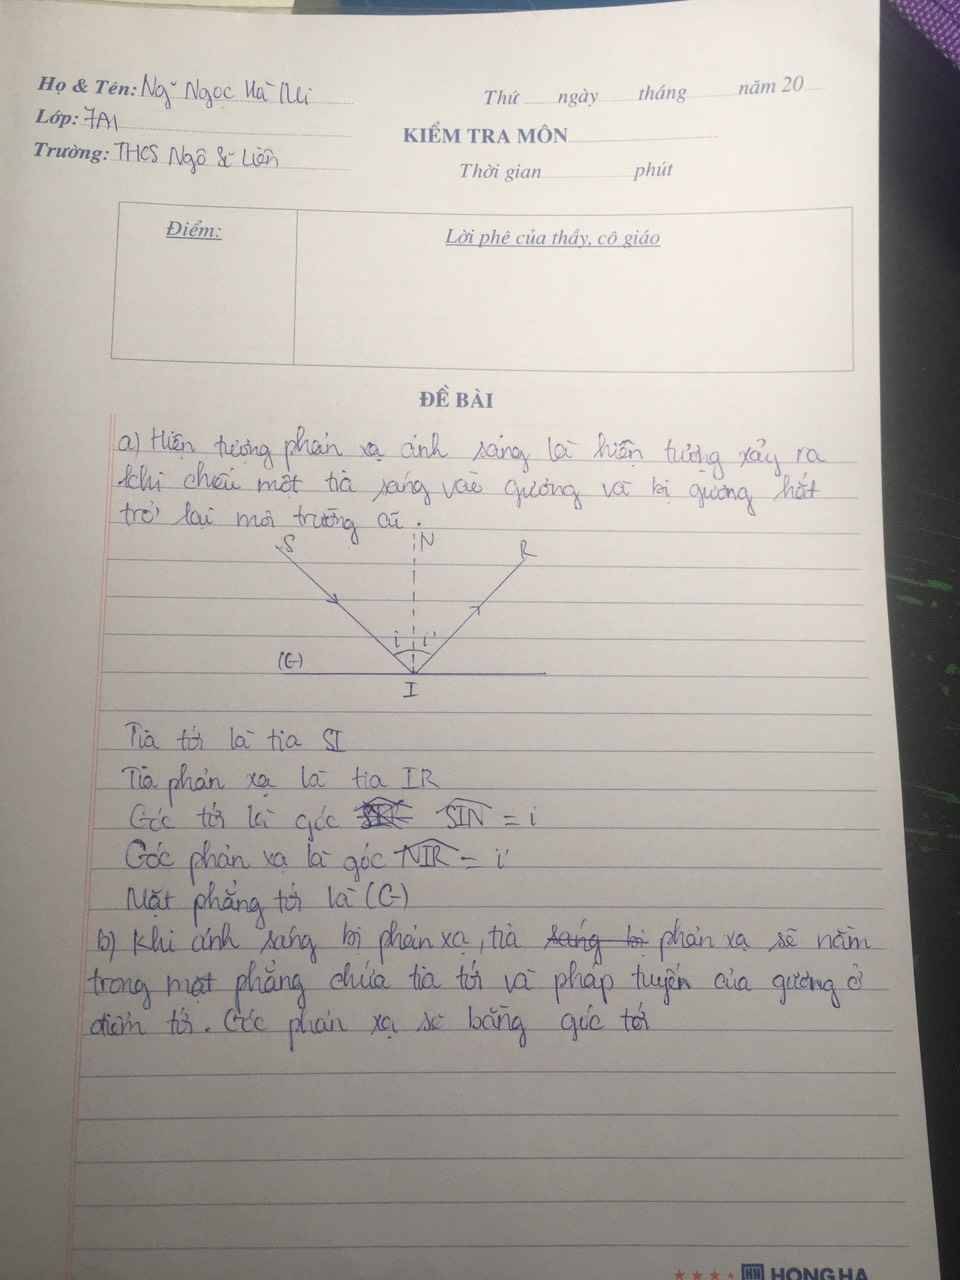 Họ & Tên: Ng~ Ngọc Hà Nhi
Thứ ngày tháng năm 20
Lớp: 7A1
KIỂM TRA MÔN
Trường: THCS Ngô Sĩ Liên
Thời gian phút
Điểm:
Lời phê của thầy, cô giáo
ĐỀ BÀI
a) Hiện tượng phản xạ ánh sáng là hiện tượng xảy ra
khi chiếu một tia sáng vào gương và bị gương hắt
trở lại môi trường cũ.
S N R
i i'
(G)
I
Tia tới là tia SI
Tia phản xạ là tia IR
Góc tới là góc SIN = i
Góc phản xạ là góc NIR = i'
Mặt phẳng tới là (G)
b) Khi ánh sáng bị phản xạ, tia sáng bị phản xạ sẽ nằm
trong mặt phẳng chứa tia tới và pháp tuyến của gương ở
điểm tới. Góc phản xạ sẽ bằng góc tới
HH HONG HA